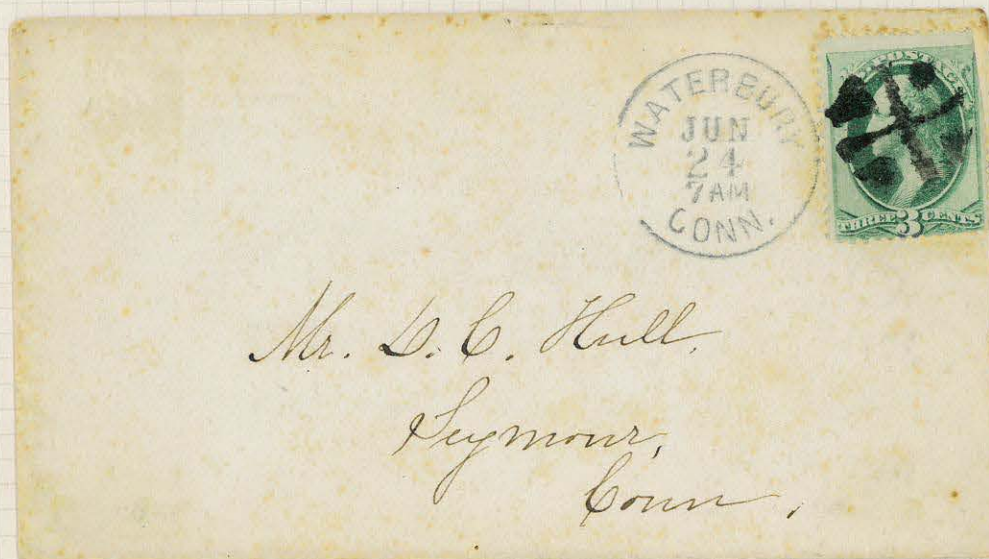 WATERBURY
JUN
24
7AM
CONN.
POSTAGE
THREE 3 CENTS
Mr. D. C. Hull,
Seymour,
Conn.